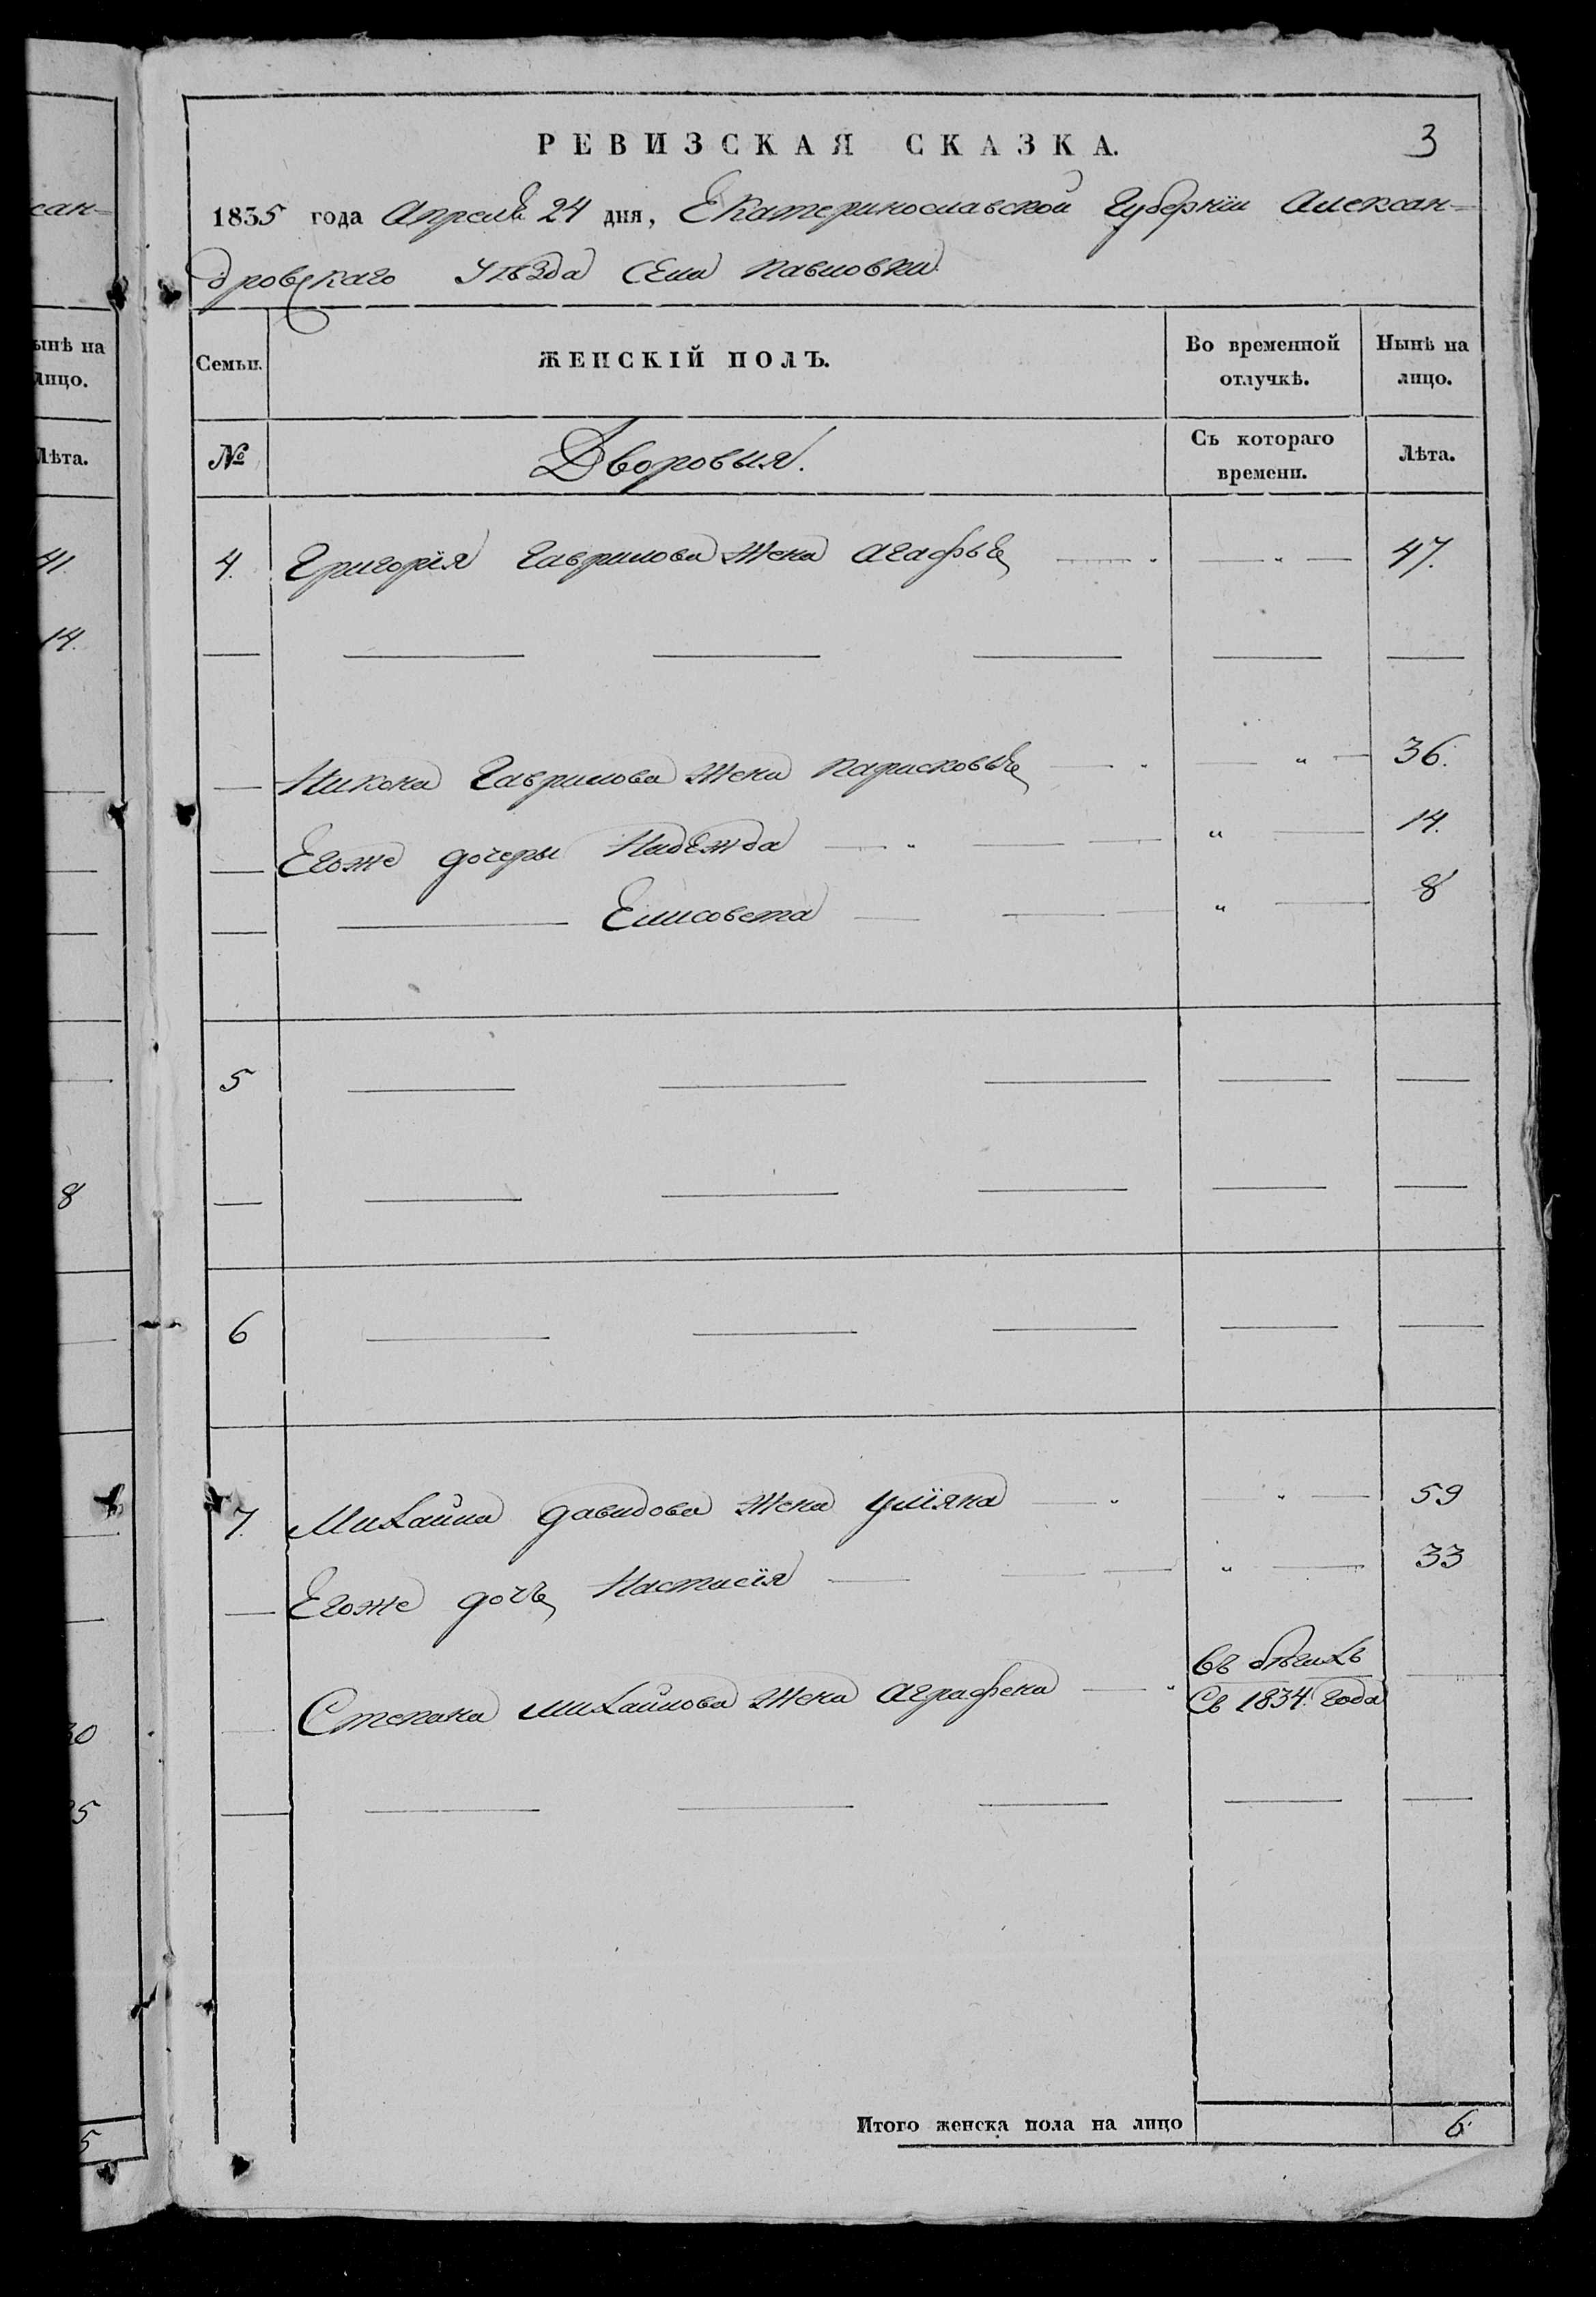 РЕВИЗСКАЯ СКАЗКА.
3
1835 года Апреля 24 дня, Екатеринославской Губерніи Алексан=
дровскаго Уѣзда Села Павловки
Семьи.
ЖЕНСКІЙ ПОЛЪ.
Во временной
отлучкѣ.
Нынѣ на
лицо.
№
Дворовыя.
Съ котораго
времени.
Лѣта.
4. Григорія Гаврилова жена Агафья — " — " — 47.
Никона Гаврилова жена Парасковья — " — " — 36.
Егоже дочеры Надежда — " — " — 14.
Елисовета — " — 8
5
6
7. Михайла Давидова жена Уліяна — " — " — 59
Егоже дочь Настасія — " — 33
Степана Михайлова жена Аграфена — "
Въ бѣгахъ
Съ 1834. года
Итого женска пола на лицо 6.
сан=
ынѣ на
лицо.
Лѣта.
41.
14.
8
30
5
5